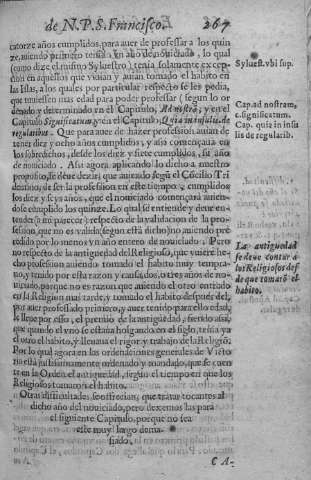 de N. P. S. Francisco. 267
catorze años cumplidos, para auer de professar a los quin
ze, auiendo primero tenido vn año de nouiciado, lo qual
(como dize el mismo Syluestro) tenia solamente excep
ción en aquellos que viuian y auian tomado el habito en
las Islas, a los quales por particular respecto se les pedia,
que tuuiessen mas edad para poder professar (segun lo or
denado y determinado en el Capitulo, Ad nostrã, y en el
Capitulo Significatum, y en el Capitulo, Quia in insulis, de
regularibus. Que para auer de hazer profession auian de
tener diez y ocho años cumplidos, y assi començaua en
los sobredichos, desde los diez y siete cumplidos, su año
de nouiciado. Assi agora aplicando lo dicho, a nuestro
proposito, se deue dezir; que auiendo segũ el Cõcilio Tri
dentino, de ser la profession en este tiempo, cumplidos
los diez y seys años, que el nouiciado començará auien-
dose cumplido los quinze. Lo qual se entiende y deue en-
tender (a mi parecer) respecto de la validacion de la pro-
fession, que no es valida (segun está dicho) no auiendo pre
cedido por lo menos vn año entero de nouiciado. Pero
en respecto de la antiguedad del Religioso, que vuiere he-
cho profession auiendo tomado el habito muy tempra-
no, y tenido por esta razon y causa dos, o tres años de no-
uiciado, porque no es razon que auiendo el otro entrado
en la Religion mas tarde, y tomado el habito despues del,
por auer professado primero, y auer tenido para ello edad,
le lleue por esso, el premio de la antiguedad; siendo assi,
que quando el vno se estaua holgando en el siglo, tenia ya
el otro el habito, y lleuaua el rigor y trabajo de la Religiõ.
Por lo qual agora en las ordenaciones generales de Vieto
nia está justissimamente ordenado y mandado, que se cuen
te en la Orden el antiguedad, segun el tiempo en que los
Religiosos tomaron el habito.
Otras dificultades se ofrecian, que tratar tocantes al
dicho año del nouiciado, pero dexemos las para
el siguiente Capitulo, porque no sea
este muy largo dema-
siado.
C A-
Syluest. vbi sup.
Cap. ad nostram,
c. significatum.
Cap. quia in insu
lis de regularib.
La antiguedad
se deue contar a
los Religiosos des
de que tomarõ el
habito.